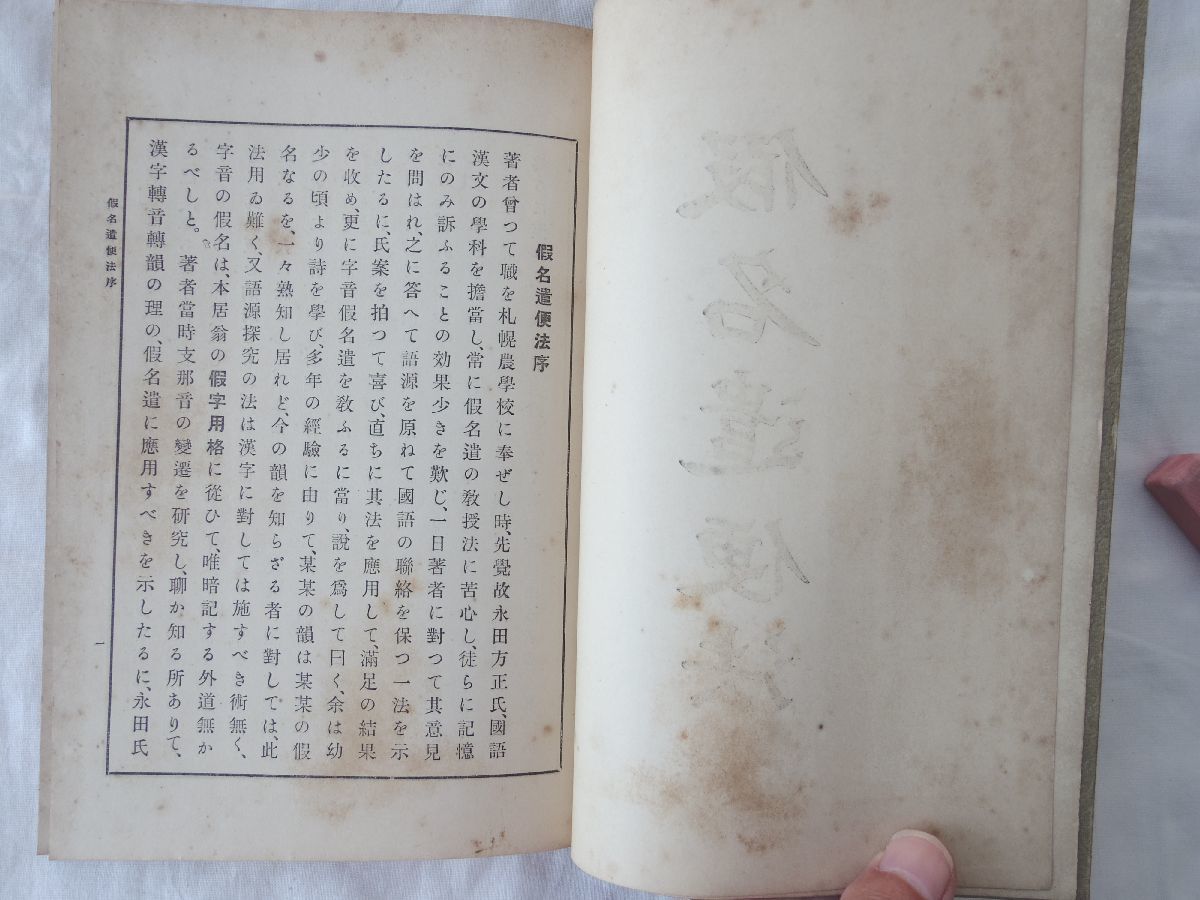 假名遣便法
假名遣便法序
著者曾つて職を札幌農學校に奉ぜし時、先覺故永田方正氏、國語
漢文の學科を擔當し、常に假名遣の敎授法に苦心し、徒らに記憶
にのみ訴ふることの効果少きを歎じ、一日著者に對つて其意見
を問はれ、之に答へて語源を原ねて國語の聯絡を保つ一法を示
したるに、氏案を拍つて喜び、直ちに其法を應用して、滿足の結果
を收め、更に字音假名遣を敎ふるに當り、說を爲して曰く、余は幼
少の頃より詩を學び、多年の經驗に由りて、某某の韻は某某の假
名なるを、一々熟知し居れど、今の韻を知らざる者に對しては、此
法用ゐ難く、又語源探究の法は漢字に對しては施すべき術無く、
字音の假名は、本居翁の假字用格に從ひて、唯暗記する外道無か
るべしと。著者當時支那音の變遷を硏究し、聊か知る所ありて、
漢字轉音轉韻の理の、假名遣に應用すべきを示したるに、永田氏
假名遣便法序
一